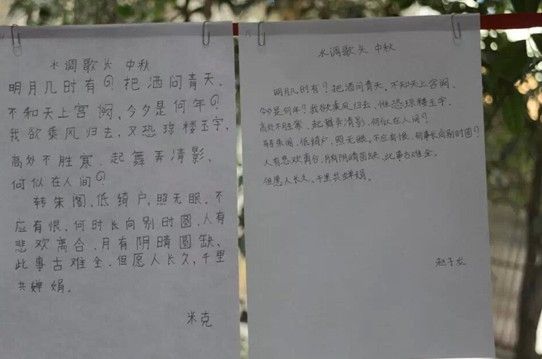 水调歌头 中秋
明月几时有？把酒问青天，
不知天上宫阙，今夕是何年？
我欲乘风归去，又恐琼楼玉宇，
高处不胜寒，起舞弄清影，
何似在人间？
转朱阁，低绮户，照无眠，不
应有恨，何时长向别时圆，人有
悲欢离合，月有阴晴圆缺，
此事古难全，但愿人长久，千里
共婵娟。
米克
水调歌头 中秋
明月几时有？把酒问青天，不知天上宫阙，
今夕是何年？我欲乘风归去，惟恐琼楼玉宇，
高处不胜寒，起舞弄清影，何似在人间？
转朱阁，低绮户，照无眠，不应有恨，何事长向别时圆？
人有悲欢离合，月有阴晴圆缺，此事古难全，
但愿人长久，千里共婵娟。
赵子龙